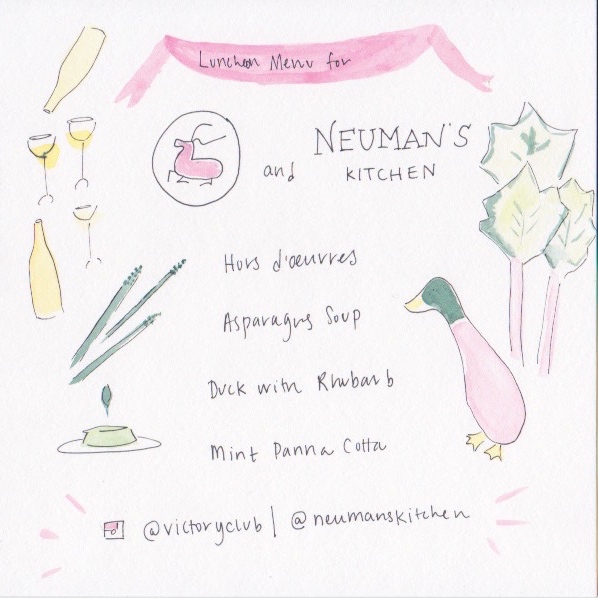 Luncheon Menu for
and
NEUMAN'S
KITCHEN
Hors d'œuvres
Asparagus Soup
Duck with Rhubarb
Mint Panna Cotta
@victoryclub | @neumanskitchen